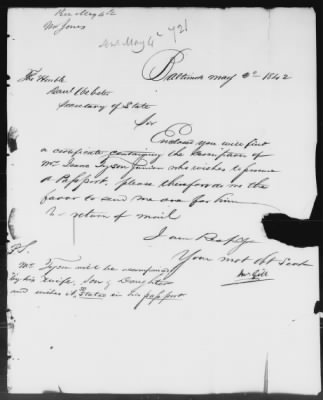 Rec May 4th
Mr Jones
Ansd May 4th 421
Baltimore May 2d 1842
The Honble
Danl Webster
Secretary of State
Sir
Enclosed you will find
a certificate containing the description of
Mr. Isaac Tyson Junior who wishes to procure
a Passport. please therefore do me the
favor to send me one for him
by return of mail
I am Respy
Your mot Obt Servt
McGill
P.S.
Mr Tyson will be accompanied
by his Wife, Son & Daughter
and wishes it stated in his passport